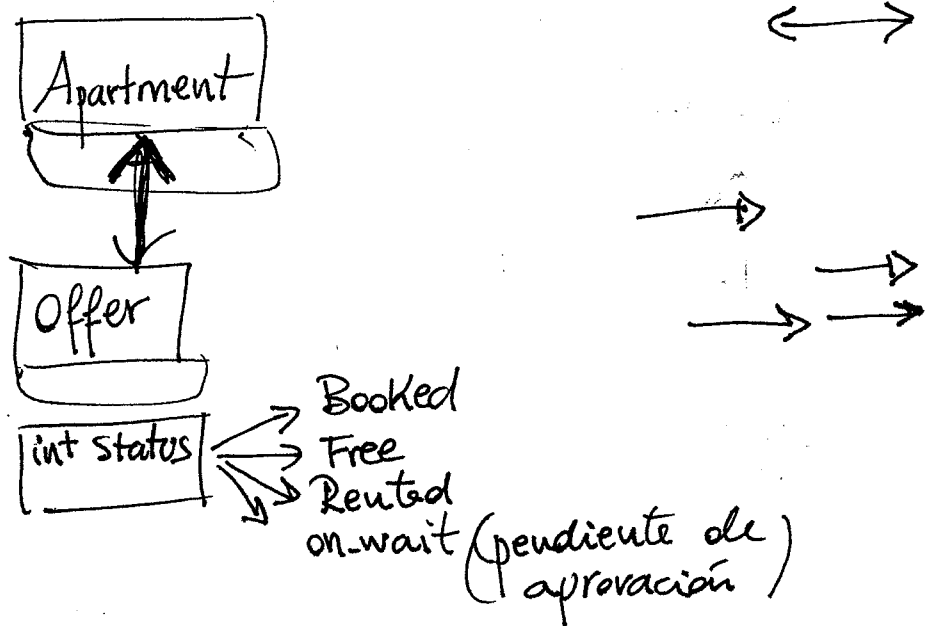 Apartment
Offer
int status
Booked
Free
Rented
on-wait (pendiente de
aprovación)